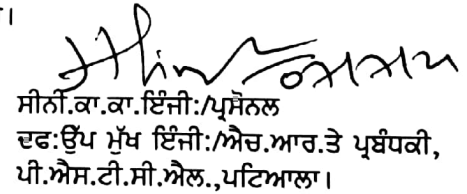 ।
ਸੀਨੀ.ਕਾ.ਕਾ.ਇੰਜੀ:/ਪ੍ਰਸੋਨਲ
ਦਫ:ਉੱਪ ਮੁੱਖ ਇੰਜੀ:/ਐਚ.ਆਰ.ਤੇ ਪ੍ਰਬੰਧਕੀ,
ਪੀ.ਐਸ.ਟੀ.ਸੀ.ਐਲ.,ਪਟਿਆਲਾ।